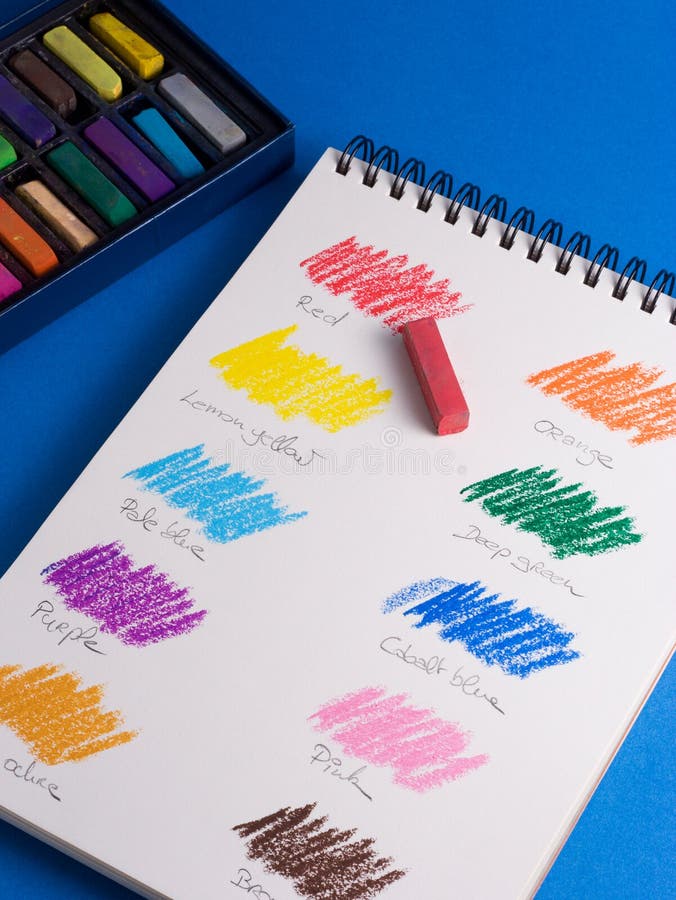 Red
Lemon yellow
Orange
Pale blue
Deep green
Purple
Cobalt blue
ochre
Pink
dreamstime.com